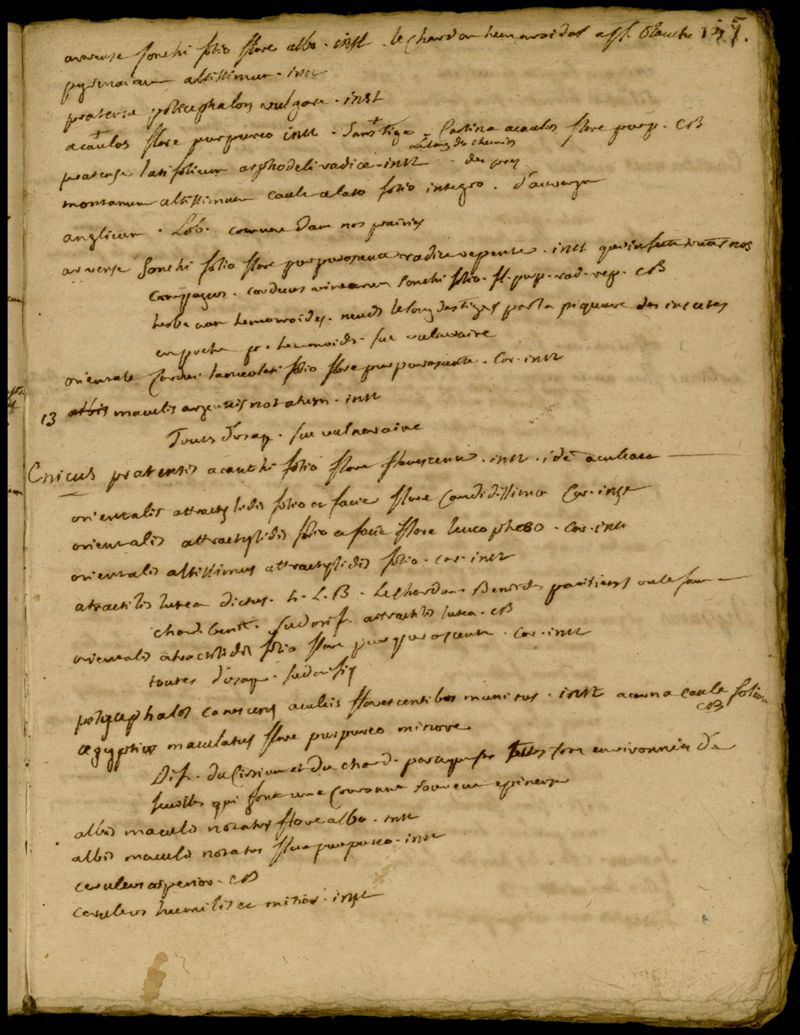 arvense sonchi folio flore albo . inst . le chardon hemoroidal a fl. blanche 147.
pyrenaicum altissimum . inst
pratense polycephalon vulgare . inst
acaulos flore purpureo inst . sans tige . Carlina acaulos flore purp. CB
le long des chemins
pratense latifolium asphodeli radice . inst . des prez
montanum altissimum caule alato folio integro . d'auvergne
anglicum . Lob. commune dans nos prairies
arvense sonchi folio flore purpurascente radice repente . inst qui infecte toutes nos
campagnes . carduus vinearum sonchi folio . fl. purp. rad. rep. CB
le long des tiges par la piqueure des insectes
en poche pr. hemoroides . vulneraire
orientale Cardui lanceolati folio flore purpurascente . Cor. inst
13 albis maculis argenteis notatum . inst
Tout d'usag. vulneraire
Cnicus pratensis acanthi folio flore flavescente . inst . idem aculeata
orientalis attractylidis folio et facie flore candidissimo Cor. inst
orientalis attractylidis folio et facie flore leucophaeo . Cor. inst
orientalis altissimus attractylidis folio . cor. inst
atractilis lutea dictus . h. L. B . Le chardon Benit des parisiens ou le faux
chard. benit . sudorif. attractilis lutea . CB
orientalis atractilidis folio flore purpurascente . cor. inst
toutes d'usag. sudorif
polycephalos canescens aculeis flavescentibus munitus . inst acarna caule folioso
CB
aegyptius maculatus flore purpureo minore
Dif. du Cirsium et du chard. parcequ'ses testes sont environnées de
feuilles qui font une couronne souvent epineuse
albis maculis notatus flore albo . inst
albis maculis notatus flore purpureo . inst
ceruleus asperior . CB
ceruleus humilis et mitior . inst